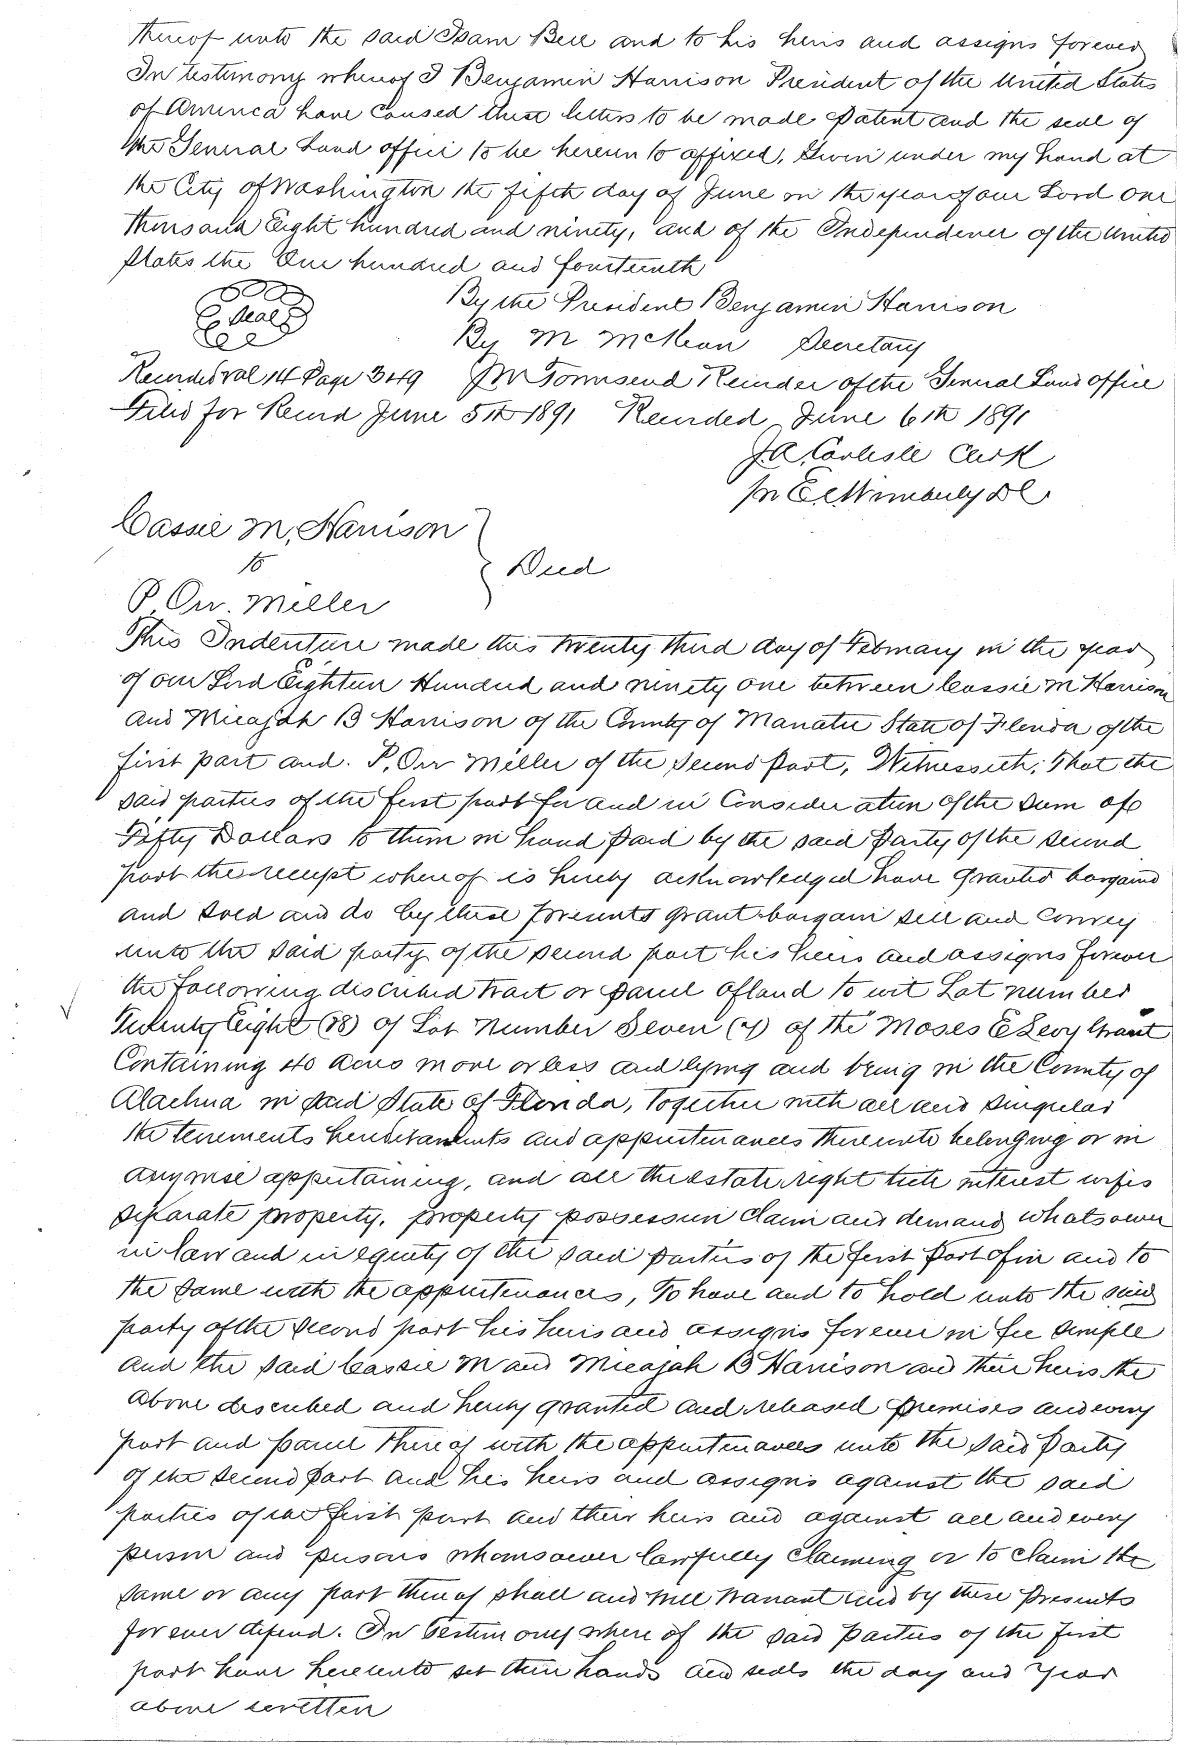 thereof unto the said Isam Bell and to his heirs and assigns forever
In testimony whereof I Benjamin Harrison President of the United States
of America have caused these letters to be made Patent and the seal of
the General Land office to be hereun to affixed, Given under my hand at
the City of Washington the fifth day of June in the year of our Lord one
thousand Eight hundred and ninety, and of the Independence of the United
States the One hundred and fourteenth
Seal
By the President Benjamin Harrison
By M McKean Secretary
Recorded Vol 14 Page 349 J M Townsend Recorder of the General Land office
Filed for Record June 5th 1891 Recorded June 6th 1891
J.A. Carlisle Clerk
pr E.C. Wimberly D C
Cassie M, Harrison
to
Deed
P, Orr. Miller
This Indenture made this twenty third day of February in the year
of our Lord Eighteen Hundred and ninety one between Cassie M Harrison
and Micajah B Harrison of the County of Manatee State of Florida of the
first part and. P, Orr Miller of the second part, Witnesseth; That the
said parties of the first part for and in Consideration of the sum of
Fifty Dollars to them in hand paid by the said Party of the second
part the receipt whereof is hereby acknowledged have granted bargaind
and sold and do by these presents grant bargain sell and Convey
unto the said party of the second part his heirs and assigns forever
the following discribed tract or parcel of land to wit Lot number
Twenty Eight (28) of Lot Number Seven (7) of the Moses E Levy Grant
Containing 40 acres more or less and lying and being in the County of
Alachua in said State of Florida, Together with all and singular
the tenements hereditaments and appurtenances thereunto belonging or in
anywise appertaining, and all the estate right title interest wifes
separate property, property possession claim and demand whatsoever
in law and in equity of the said parties of the first part of in and to
the same with the appurtenances, To have and to hold unto the said
party of the second part his heirs and assigns forever in fee simple
and the said Cassie M and Micajah B Harrison and their heirs the
above described and hereby granted and released premises and every
part and parcel thereof with the appurtenances unto the said Party
of the second part and his heirs and assigns against the said
parties of the first part and their heirs and against all and every
person and persons whomsoever lawfully claiming or to claim the
same or any part thereof shall and will warrant and by these presents
forever defend. In Testimony where of the said parties of the first
part have hereunto set their hands and seals the day and year
above written